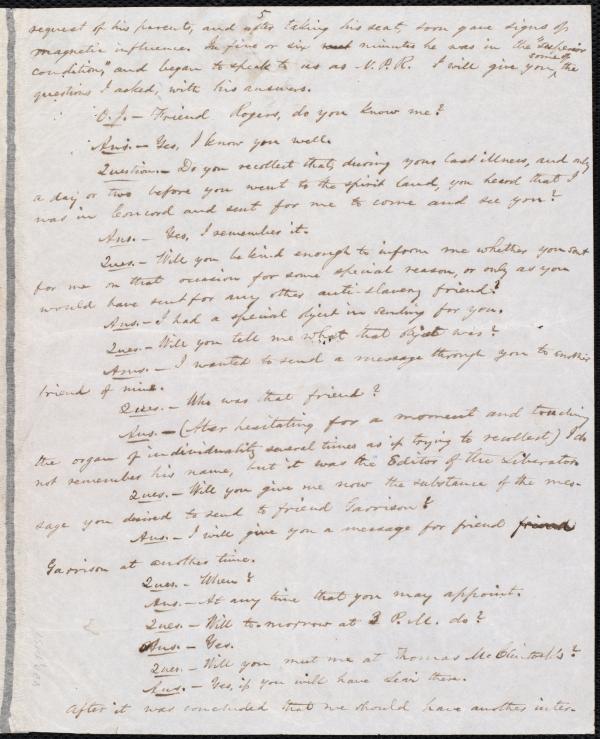 5
request of his parents, and after taking his seat, soon gave signs of
magnetic influence. In five or six minutes he was in the "superior
condition," and began to speak to us as N.P.R. I will give you some of the
questions I asked, with his answers.
O.J.— Friend Rogers, do you know me?
Ans.— Yes, I know you well.
Question.— Do you recollect that, during your last illness, and only
a day or two before you went to the spirit land, you heard that I
was in Concord and sent for me to come and see you?
Ans.— Yes, I remember it.
Ques.— Will you be kind enough to inform me whether you sent
for me on that occasion for some special reason, or only as you
would have sent for any other anti-slavery friend?
Ans.— I had a special object in sending for you.
Ques.— Will you tell me what that object was?
Ans.— I wanted to send a message through you to another
friend of mine.
Ques.— Who was that friend?
Ans.— (After hesitating for a moment and touching
the organ of individuality several times as if trying to recollect) I do
not remember his name, but it was the Editor of the Liberator.
Ques.— Will you give me now the substance of the mes-
sage you desired to send to friend Garrison?
Ans.— I will give you a message for friend
Garrison at another time.
Ques.— When?
Ans.— At any time that you may appoint.
Ques.— Will to-morrow at 2 P.M. do?
Ans.— Yes.
Ques.— Will you meet me at Thomas McClintock's?
Ans.— Yes, if you will have Levi there.
After it was concluded that we should have another inter-